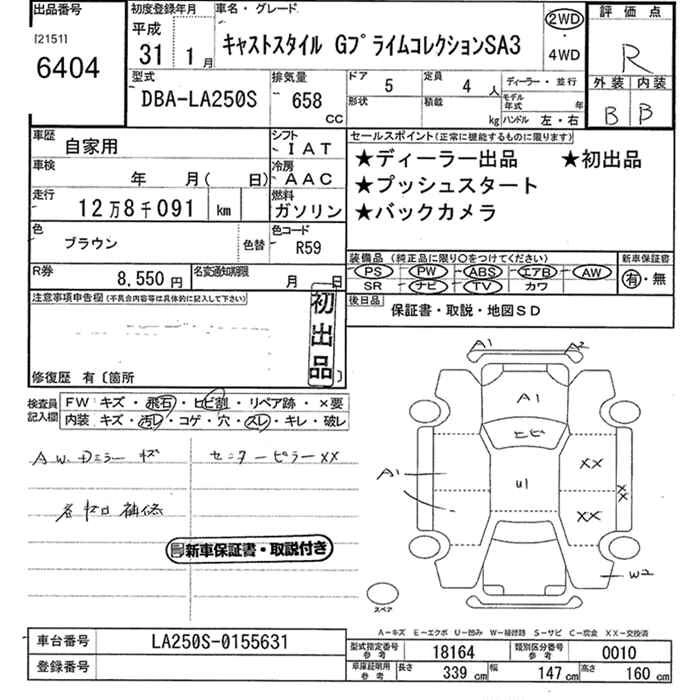 出品番号
[2151]
6404
初度登録年月
平成
31 1月
車名・グレード
キャストスタイル GプライムコレクションSA3
2WD
・
4WD
評価点
R
外装 内装
B B
型式
DBA-LA250S
排気量
658
CC
ドア
5
定員
4人
ディーラー・並行
形状
積載
kg
モデル年式 年
ハンドル 左・右
車歴
自家用
シフト
IAT
車検
年 月( 日)
冷房
AAC
走行
12万8千091 km
燃料
ガソリン
色
ブラウン
色替
色コード
R59
R券
8,550円
名変通知期限
月 日
セールスポイント(正常に機能するものに限ります)
★ディーラー出品 ★初出品
★プッシュスタート
★バックカメラ
装備品(純正品に限り○をつけてください)
PS PW ABS エアB AW
SR ナビ TV カワ
新車保証書
有・無
後日品
保証書・取説・地図SD
注意事項申告欄(不具合内容等は具体的に記入して下さい)
初出品
修復歴 有〔箇所 〕
検査員記入欄
FW キズ・飛石・ヒビ割・リペア跡・×要
内装 キズ・汚レ・コゲ・穴・スレ・キレ・破レ
AW Dミラー キズ
センターピラーXX
各キロ 補修
新車保証書・取説付き
A1 A2
A1
ヒビ
A1
U1
XX
XX
XX
W2
スペア
A-キズ E-エクボ U-凹み W-補修跡 S-サビ C-腐食 XX-交換済
車台番号
LA250S-0155631
登録番号
型式指定番号
参考
18164
類別区分番号
参考
0010
車庫証明用
参考
長さ
339 cm
幅
147 cm
高さ
160 cm